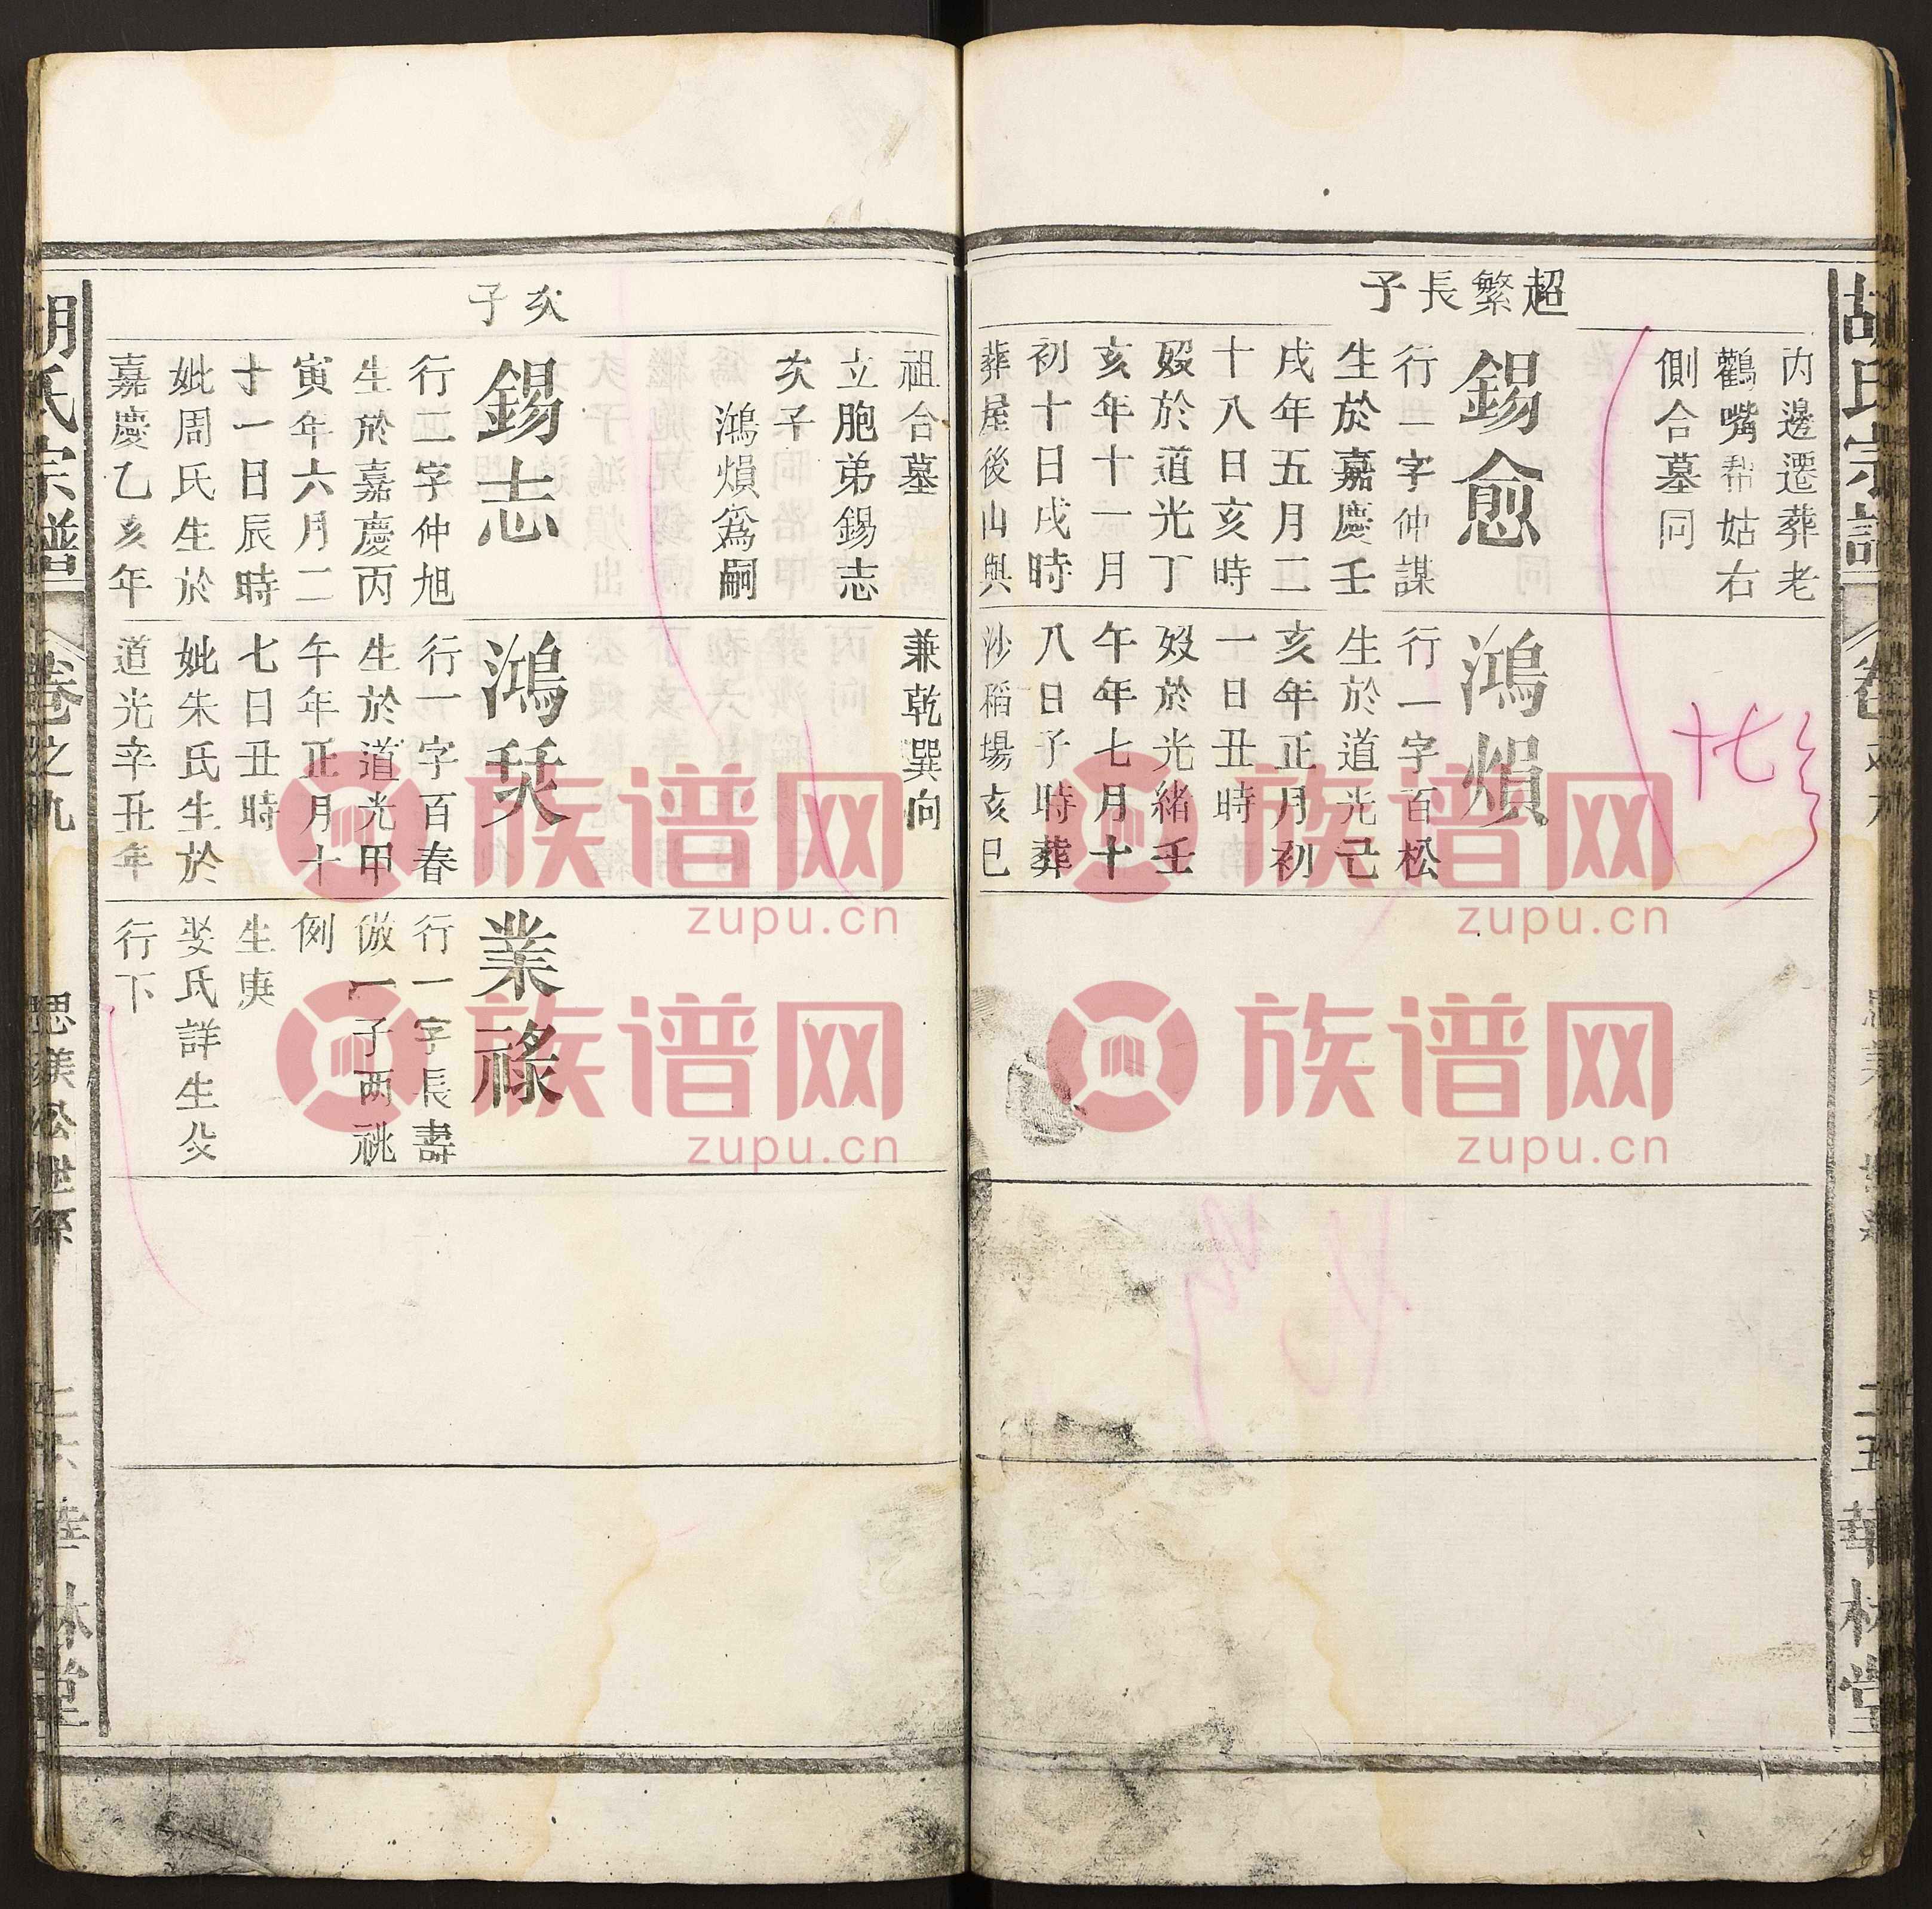 胡氏宗譜
二五
華林堂
超繁長子
內邊遷葬老
鸛嘴帮姑右
側合墓同
錫愈
行一字仲謀
生於嘉慶壬
戌年五月二
十八日亥時
歿於道光丁
亥年十一月
初十日戌時
葬屋後山與
鴻熉
行一字百松
生於道光己
亥年正月初
一日丑時
歿於光緒壬
午年七月十
八日子時葬
沙稻場亥巳
十七
次子
祖合墓
立胞弟錫志
次子
鴻熉為嗣
兼乾巽向
錫志
行二字仲旭
生於嘉慶丙
寅年六月二
十一日辰時
妣周氏生於
嘉慶乙亥年
鴻
行一字百春
生於道光甲
午年正月十
七日丑時
妣朱氏生於
道光辛丑年
業祿
行一字長壽
倣一子两祧
例
生庚
娶氏詳生殁
行下
胡氏宗譜
卷之九
思義公世系
二六
華林堂
族谱网
zupu.cn
族谱网
zupu.cn
族谱网
zupu.cn
族谱网
zupu.cn